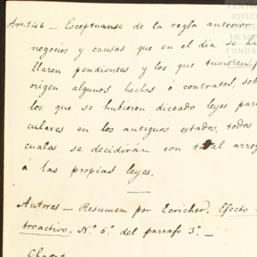 Art. 146 — Exceptúanse de la regla anterior
negocios y causas que en el dia se ha
llaren pendientes y los que tuvieren p
origen algunos hechos ó contratos, sob
los que se hubieren dictado leyes par
culares en los antiguos estados, todas
cuales se decidirán con total arreg
á las propias leyes.
Autores — Resumen por Escriche. Efecto
troactivo. N.º 6.º del parrafo 3.º —